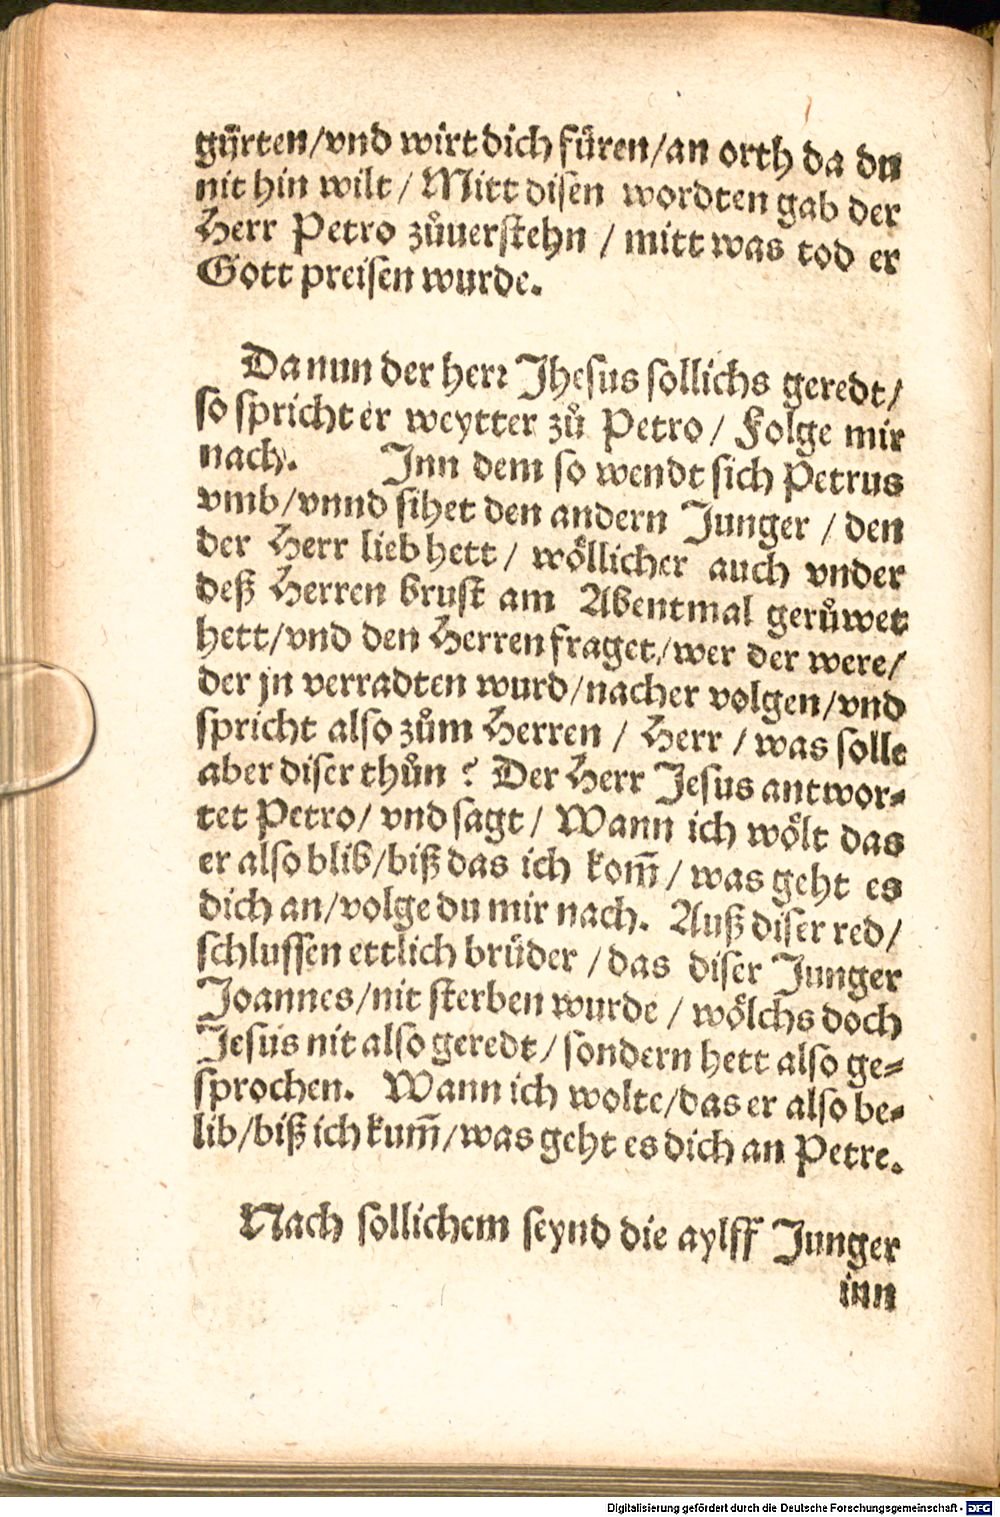 gürten/vnd wirt dich füren/an orth da du
nit hin wilt / Mitt disen wordten gab der
Herr Petro zůuerstehn / mitt was tod er
Gott preisen wurde.
Da nun der herr Jhesus sollichs geredt/
so spricht er weytter zů Petro / Folge mir
nach. Inn dem so wendt sich Petrus
vmb/vnnd sihet den andern Junger / den
der Herr lieb hett / wöllicher auch vnder
deß Herren brust am Abentmal gerůwet
hett/vnd den Herren fraget/wer der were/
der jn verradten wurd/nacher volgen/vnd
spricht also zům Herren / Herr / was solle
aber diser thůn ? Der Herr Jesus antwor-
tet Petro/ vnd sagt/ Wann ich wölt das
er also blib/biß das ich kom̃ / was geht es
dich an/volge du mir nach. Auß diser red/
schlussen ettlich brüder / das diser Junger
Joannes/nit sterben wurde / wölchs doch
Jesus nit also geredt / sondern hett also ge-
sprochen. Wann ich wolte/das er also be-
lib/biß ich kum̃/was geht es dich an Petre.
Nach sollichem seynd die aylff Junger
inn
Digitalisierung gefördert durch die Deutsche Forschungsgemeinschaft - DFG